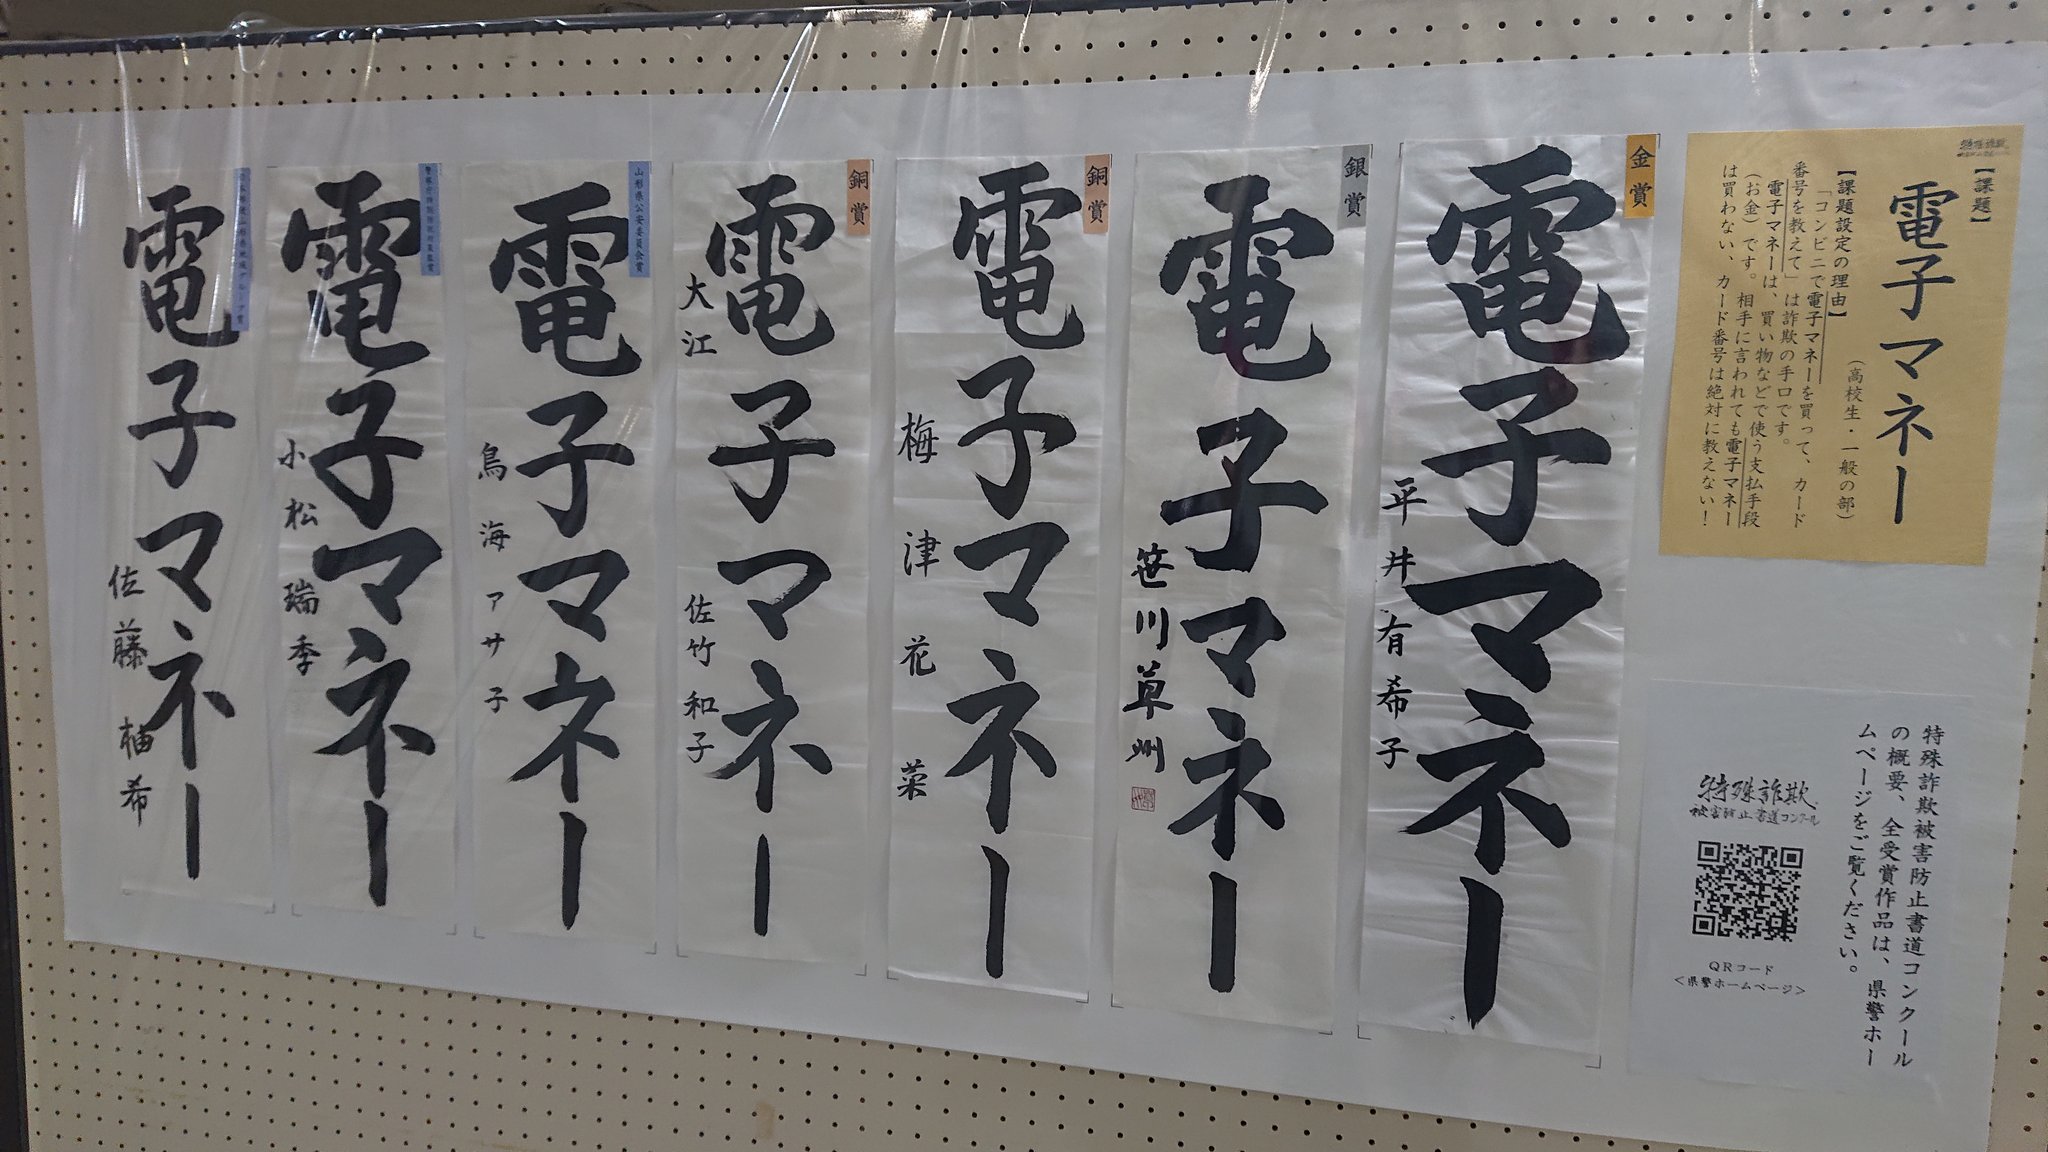 【課題】
電子マネー
（高校生・一般の部）
【課題設定の理由】
「コンビニで電子マネーを買って、カード
番号を教えて」は詐欺の手口です。
電子マネーは、買い物などで使う支払手段
（お金）です。相手に言われても電子マネー
は買わない、カード番号は絶対に教えない！
特殊詐欺被害防止書道コンクール
の概要、全受賞作品は、県警ホー
ムページをご覧ください。
特殊詐欺
被害防止書道コンクール
QRコード
＜県警ホームページ＞
金賞
電子マネー
平井有希子
銀賞
電子マネー
笹川草州
銅賞
電子マネー
梅津花菜
銅賞
電子マネー
大江
佐竹和子
山形県公安委員会賞
電子マネー
鳥海アサ子
電子マネー
小松瑞季
電子マネー
佐藤柚希